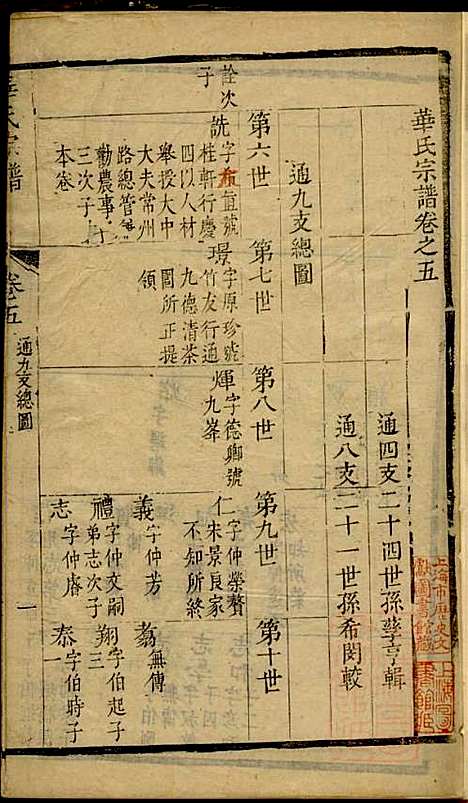 華氏宗譜卷之五
通四支二十四世孫孳亨輯
通八支二十一世孫希閔較
通九支總圖
第六世
第七世
第八世
第九世
第十世
詮次子
詵字希宣號
桂軒行慶
四以人材
舉授大中
大夫常州
路總管
勸農事
三次子
本卷
璟字原珍號
竹友行通
九德清茶
園所正提
領
煇字德卿號
九峯
仁字仲榮贅
宋景良家
不知所終
義字仲芳
禮字仲文嗣
弟志次子
志字仲睿
翥無傳
翔字伯起子
三
泰字伯時子
一
華氏宗譜
卷五
通九支總圖
一
上海市歷史文獻圖書館藏